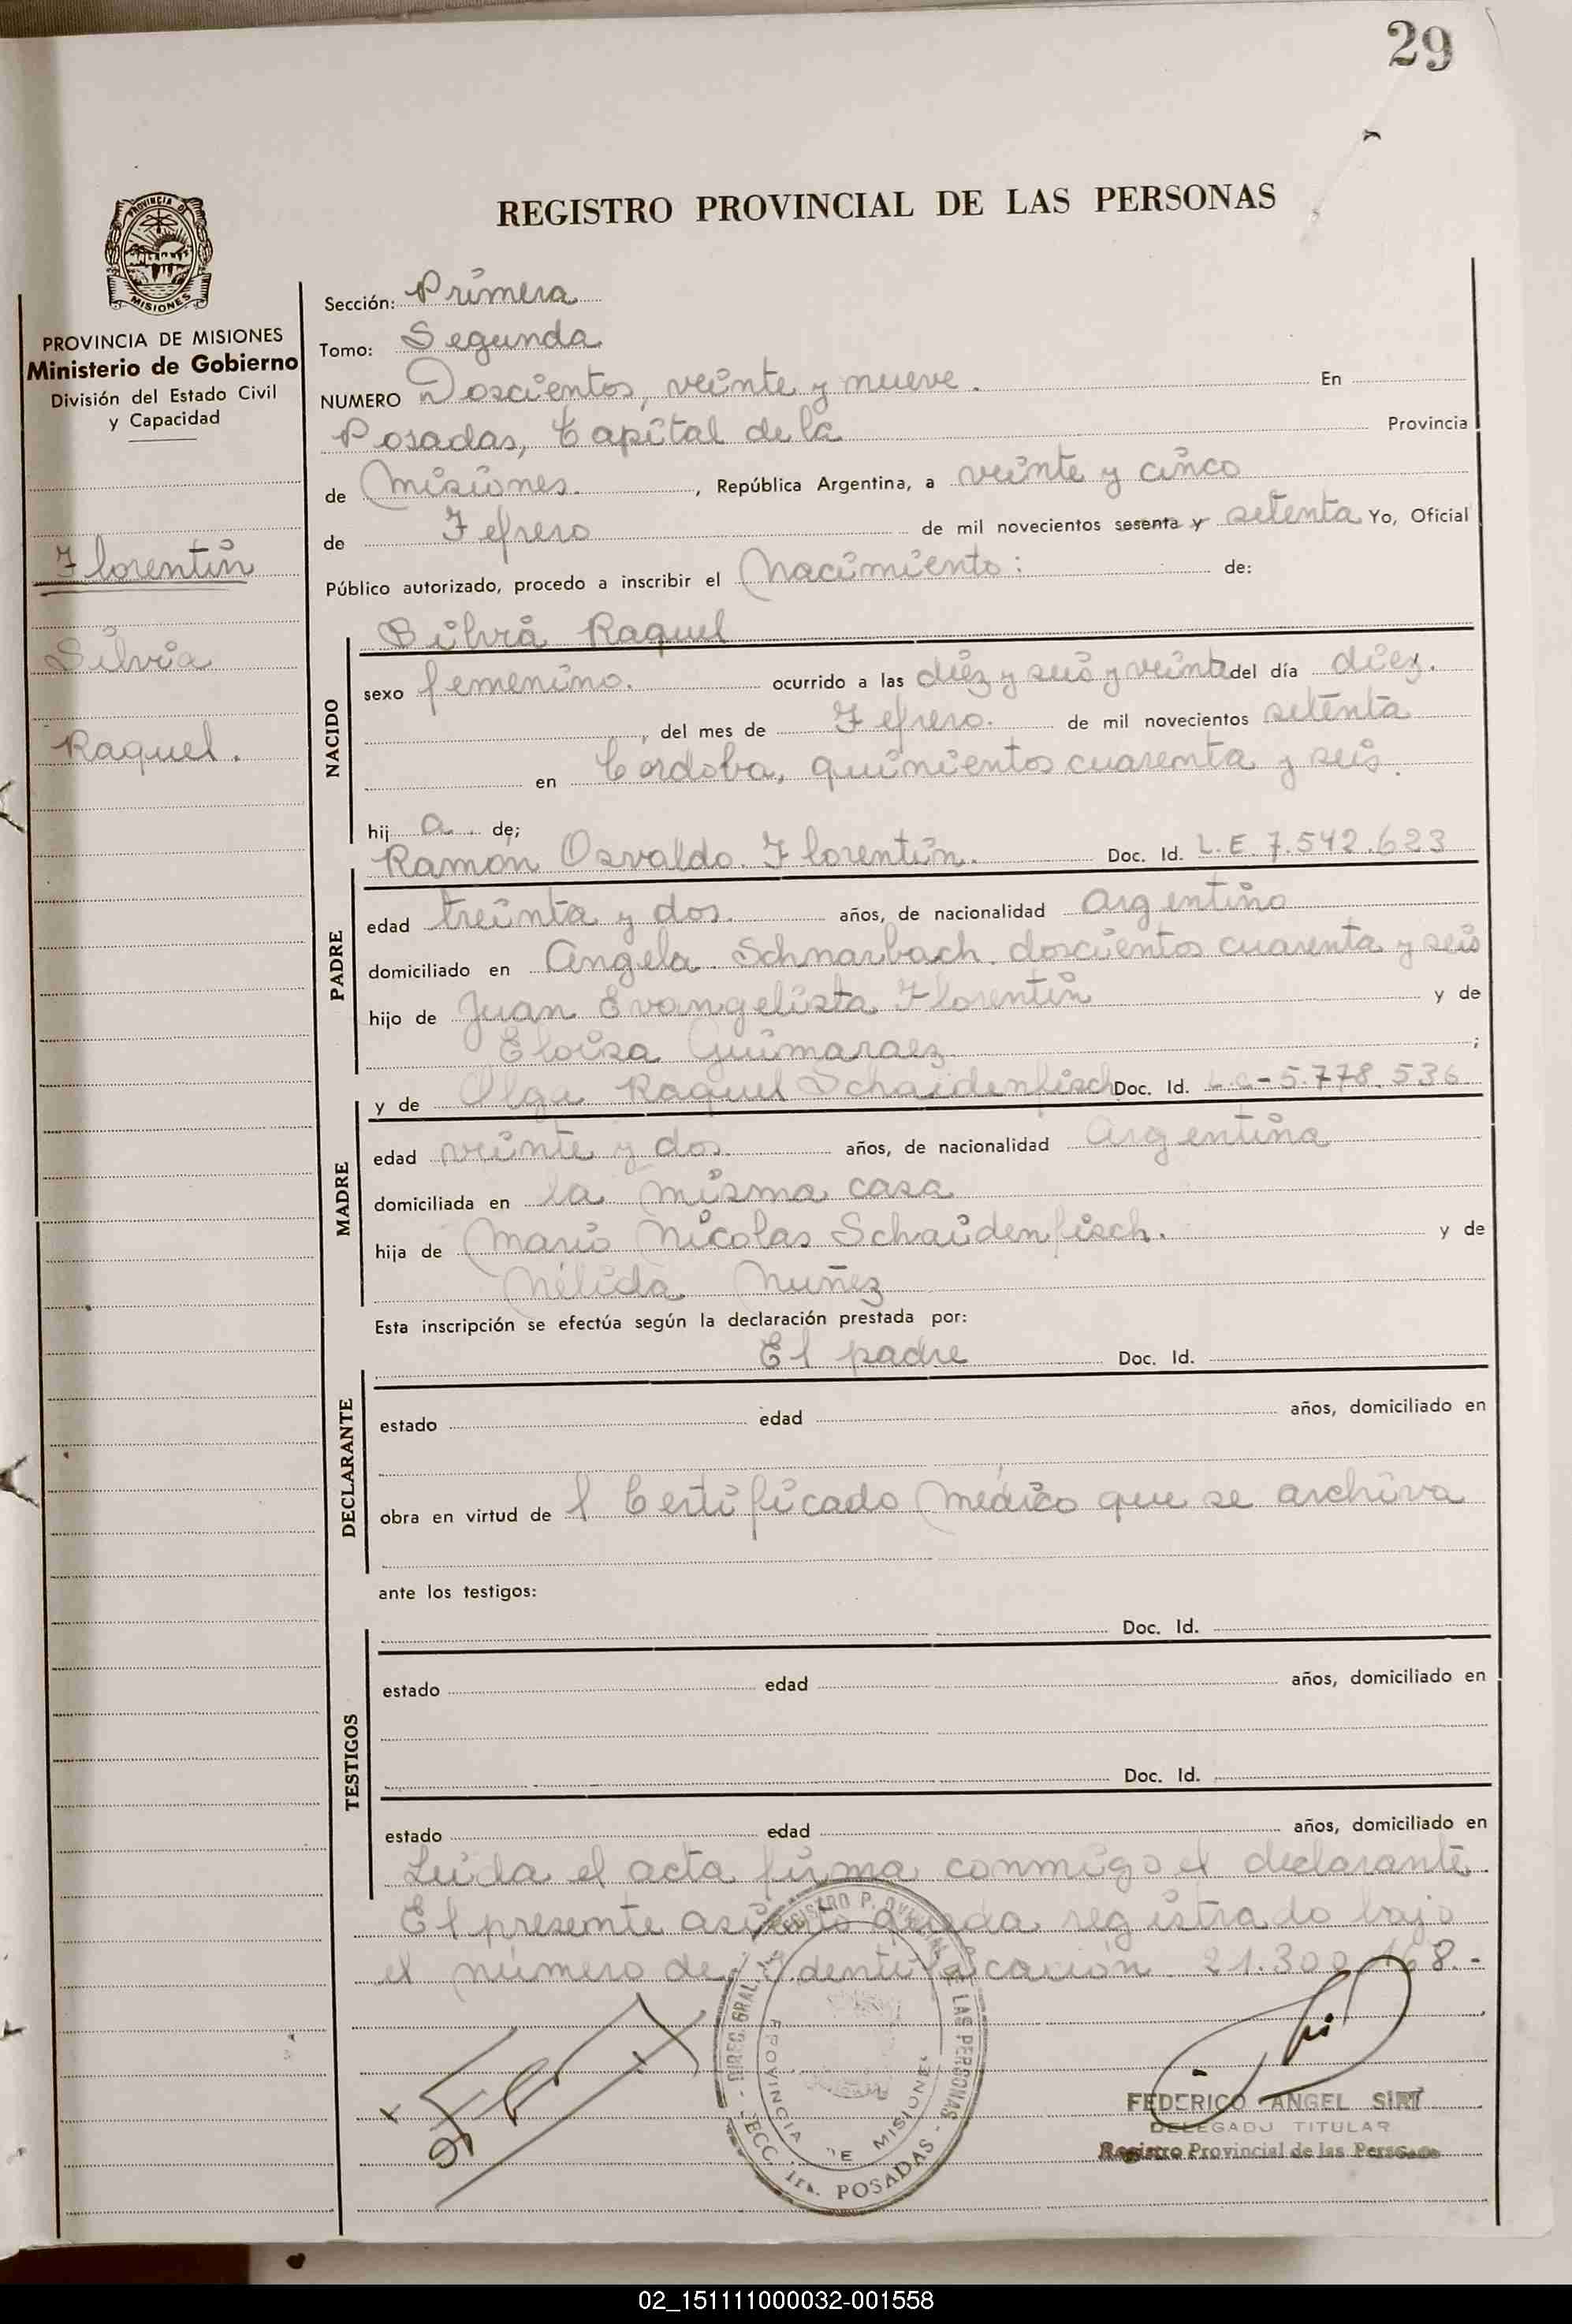 29
REGISTRO PROVINCIAL DE LAS PERSONAS
PROVINCIA DE MISIONES
PROVINCIA DE MISIONES
Ministerio de Gobierno
División del Estado Civil
y Capacidad
Florentin
Silvia
Raquel.
Sección: Primera
Tomo: Segunda
NUMERO Doscientos, veinte y nueve. En
Posadas, Capital de la Provincia
de Misiones. , República Argentina, a veinte y cinco
de Febrero de mil novecientos sesenta y setenta Yo, Oficial
Público autorizado, procedo a inscribir el Nacimiento: de:
NACIDO
Silvia Raquel
sexo femenino. ocurrido a las diez y seis y veinte del día diez.
, del mes de Febrero. de mil novecientos setenta
en Córdoba, quinientos cuarenta y seis.
hij a de;
PADRE
Ramón Osvaldo Florentin. Doc. Id. L.E. 7.542.623
edad treinta y dos. años, de nacionalidad argentino
domiciliado en Angela Schnarbach doscientos cuarenta y seis
hijo de Juan Evangelista Florentin y de
Eloisa Guimaraez ;
MADRE
y de Olga Raquel Schaidenfisch Doc. Id. L.C-5.778.536
edad veinte y dos. años, de nacionalidad argentina
domiciliada en la misma casa
hija de Mario Nicolas Schaidenfisch. y de
Nélida Nuñez
Esta inscripción se efectúa según la declaración prestada por:
DECLARANTE
El padre Doc. Id.
estado edad años, domiciliado en
obra en virtud de l Certificado Médico que se archiva
ante los testigos:
TESTIGOS
Doc. Id.
estado edad años, domiciliado en
Doc. Id.
estado edad años, domiciliado en
Leida el acta firma conmigo el declarante
El presente asiento queda registrado bajo
el número de Identificación 21.300.168.-
DIREC. GRAL. REGISTRO PROVINCIAL DE LAS PERSONAS - SECC. 1ra. POSADAS -
PROVINCIA DE MISIONES
FEDERICO ANGEL SIRT
DELEGADO TITULAR
Registro Provincial de las Personas
02_151111000032-001558